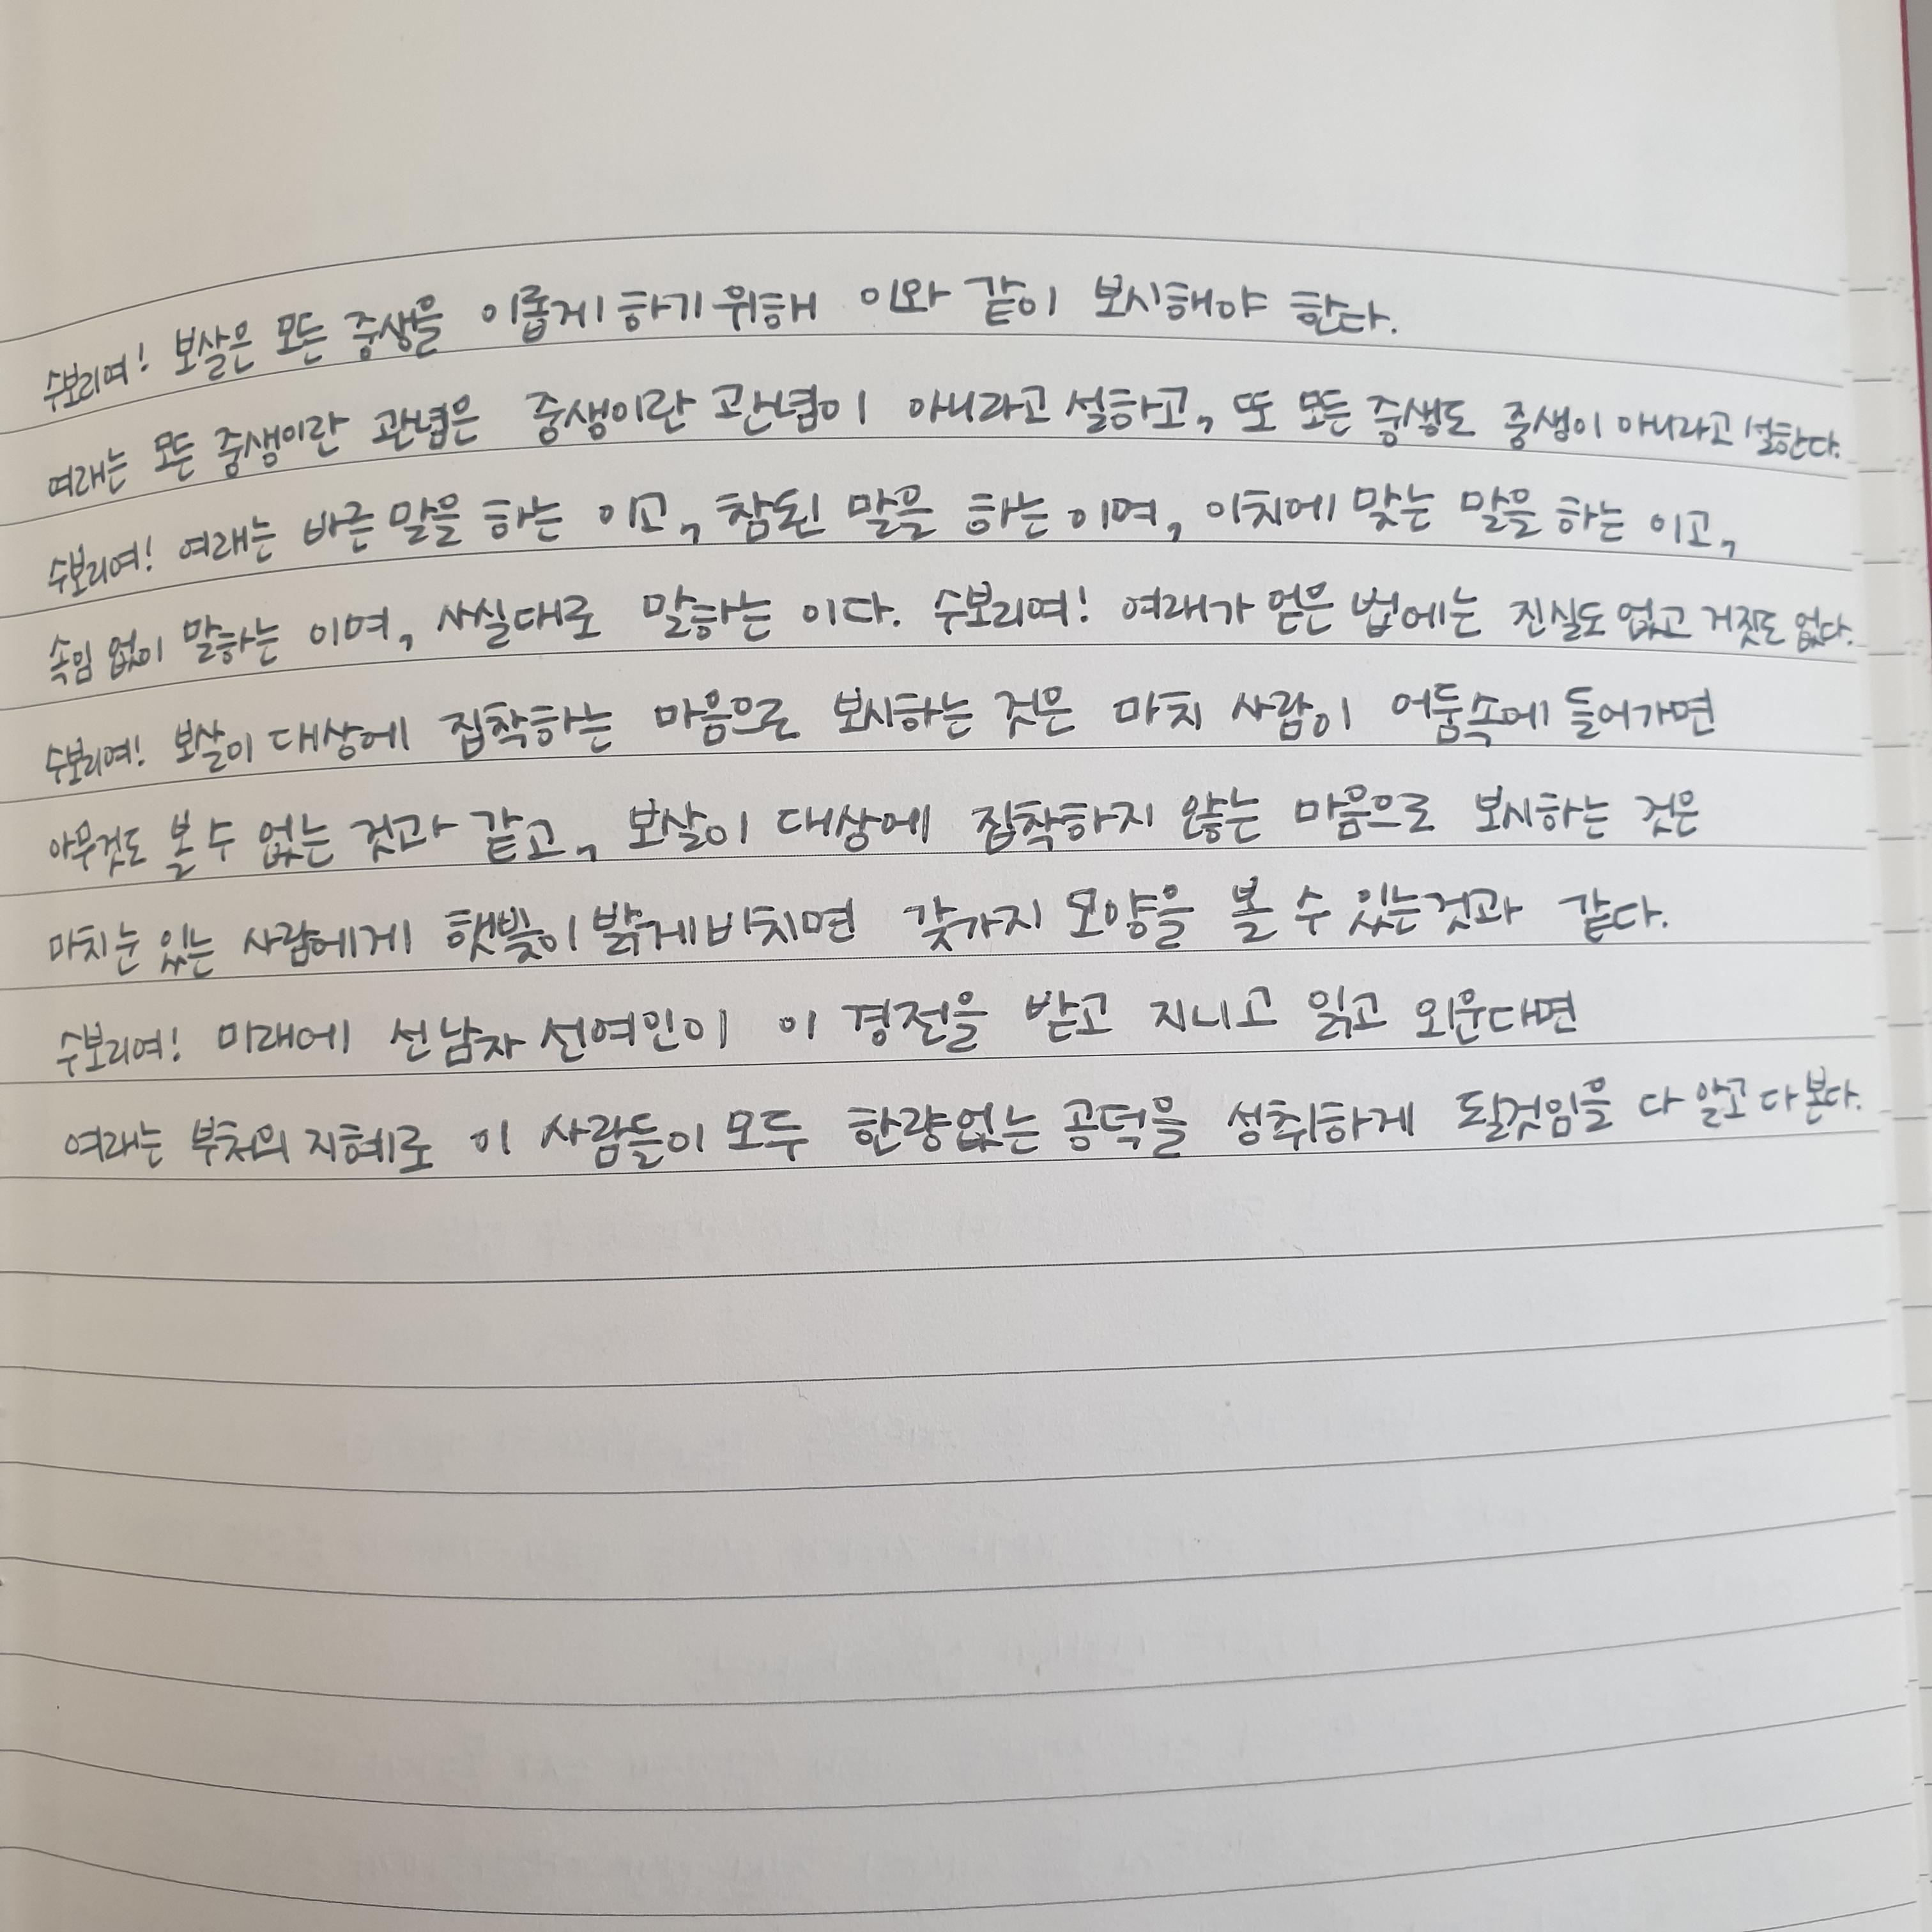 수보리여! 보살은 모든 중생을 이롭게 하기 위해 이와 같이 보시해야 한다.
여래는 모든 중생이란 관념은 중생이란 관념이 아니라고 설하고, 또 모든 중생도 중생이 아니라고 설한다.
수보리여! 여래는 바른 말을 하는 이고, 참된 말을 하는 이며, 이치에 맞는 말을 하는 이고,
속임 없이 말하는 이며, 사실대로 말하는 이다. 수보리여! 여래가 얻은 법에는 진실도 없고 거짓도 없다.
수보리여! 보살이 대상에 집착하는 마음으로 보시하는 것은 마치 사람이 어둠속에 들어가면
아무것도 볼 수 없는 것과 같고, 보살이 대상에 집착하지 않는 마음으로 보시하는 것은
마치 눈 있는 사람에게 햇빛이 밝게 비치면 갖가지 모양을 볼 수 있는것과 같다.
수보리여! 미래에 선남자 선여인이 이 경전을 받고 지니고 읽고 외운다면
여래는 부처의 지혜로 이 사람들이 모두 한량없는 공덕을 성취하게 될것임을 다 알고 다 본다.